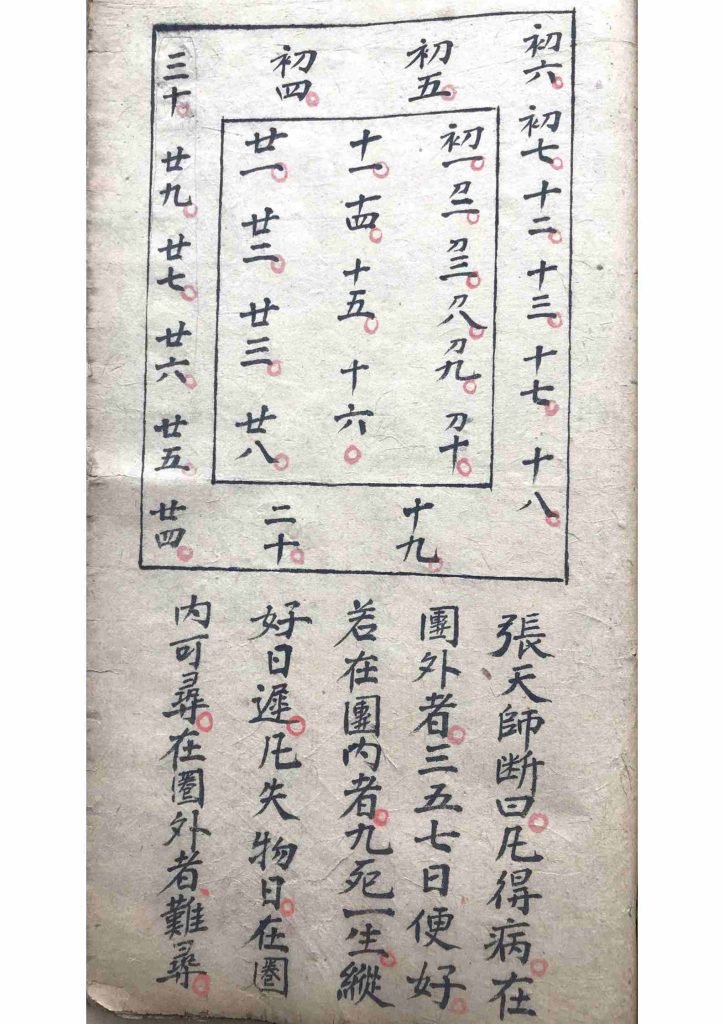 初六。初七。十二。十三。十七。十八。
初五。
初四。
三十。廿九。廿七。廿六。廿五。廿四。
初一。刀二。刀三。刀八。刀九。刀十。
十一。十四。十五。十六。
廿一。廿二。廿三。廿八。
十九。
二十。
張天師断曰。凡得病。在
團外者。三五七日便好。
若在團内者。九死一生。縱
好日遲。凡失物日。在圈
内可尋。在圈外者難尋。